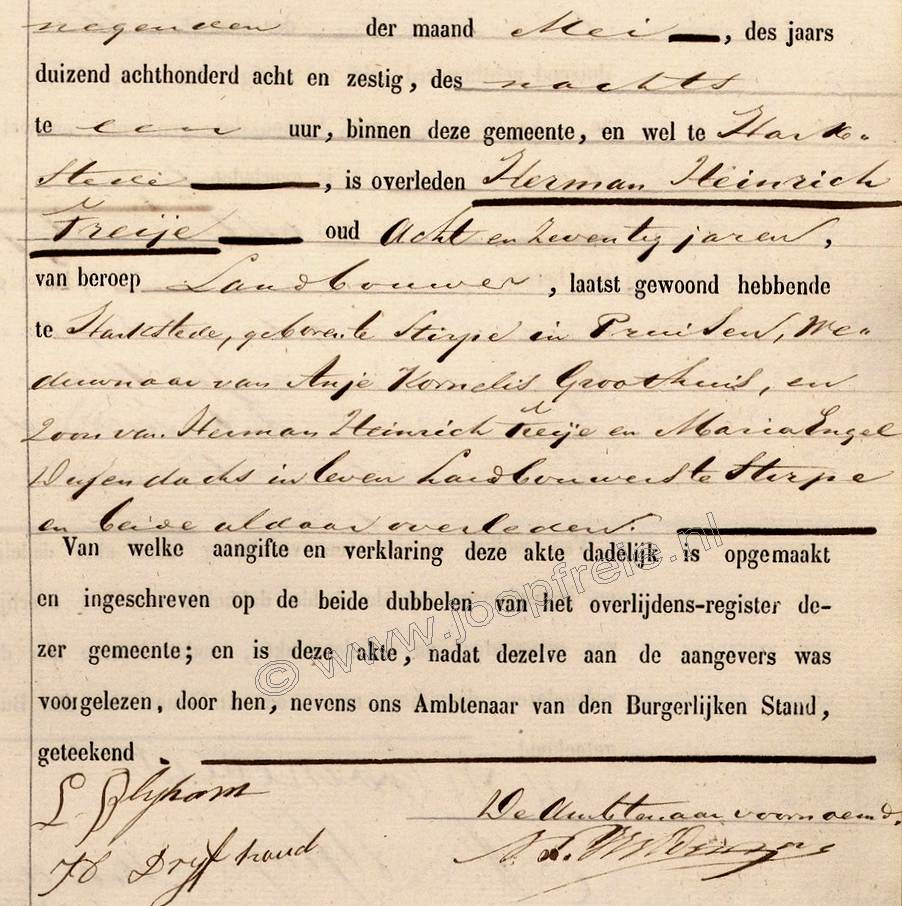 negenden der maand Mei, des jaars
duizend achthonderd acht en zestig, des nachts
te een uur, binnen deze gemeente, en wel te Hark-
stede, is overleden Herman Heinrich
Freije oud Acht en zeventig jaren,
van beroep Landbouwer, laatst gewoond hebbende
te Harkstede, geboren te Stirpe in Pruisen, We-
duwnaar van Anje Kornelis Groothuis, en
Zoon van Herman Heinrich Freije en Maria Engel
in leven Landbouwers te Stirpe
en beide aldaar overleden.
Van welke aangifte en verklaring deze akte dadelijk is opgemaakt
en ingeschreven op de beide dubbelen van het overlijdens-register de-
zer gemeente; en is deze akte, nadat dezelve aan de aangevers was
voorgelezen, door hen, nevens ons Ambtenaar van den Burgerlijken Stand,
geteekend.
De Ambtenaar voornoemd,
© www.joopfreie.nl